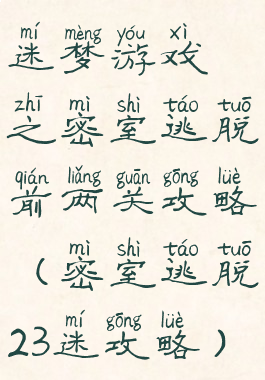 mí mèng yóu xì
迷梦游戏
zhī mì shì táo tuō
之密室逃脱
qián liǎng guān gōng lüè
前两关攻略
mì shì táo tuō
（密室逃脱
mí gōng lüè
23迷攻略）